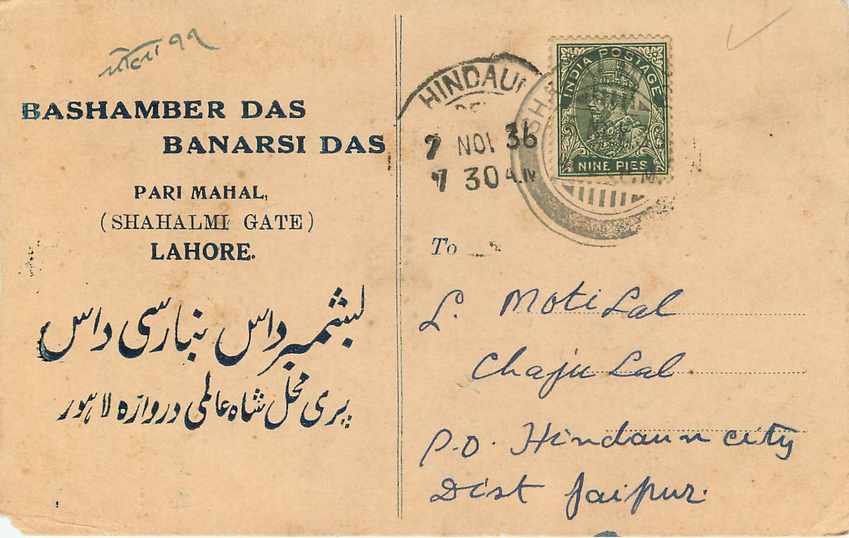 BASHAMBER DAS
BANARSI DAS
PARI MAHAL,
(SHAHALMI GATE)
LAHORE.
بشمبر داس بنارسی داس
پری محل شاہ عالمی دروازہ لاہور
HINDAU
7 NOV 36
7 30 A.M
INDIA POSTAGE
NINE PIES
To
L. Moti Lal
Chaju Lal
P.O. Hindaun city
Dist Jaipur.